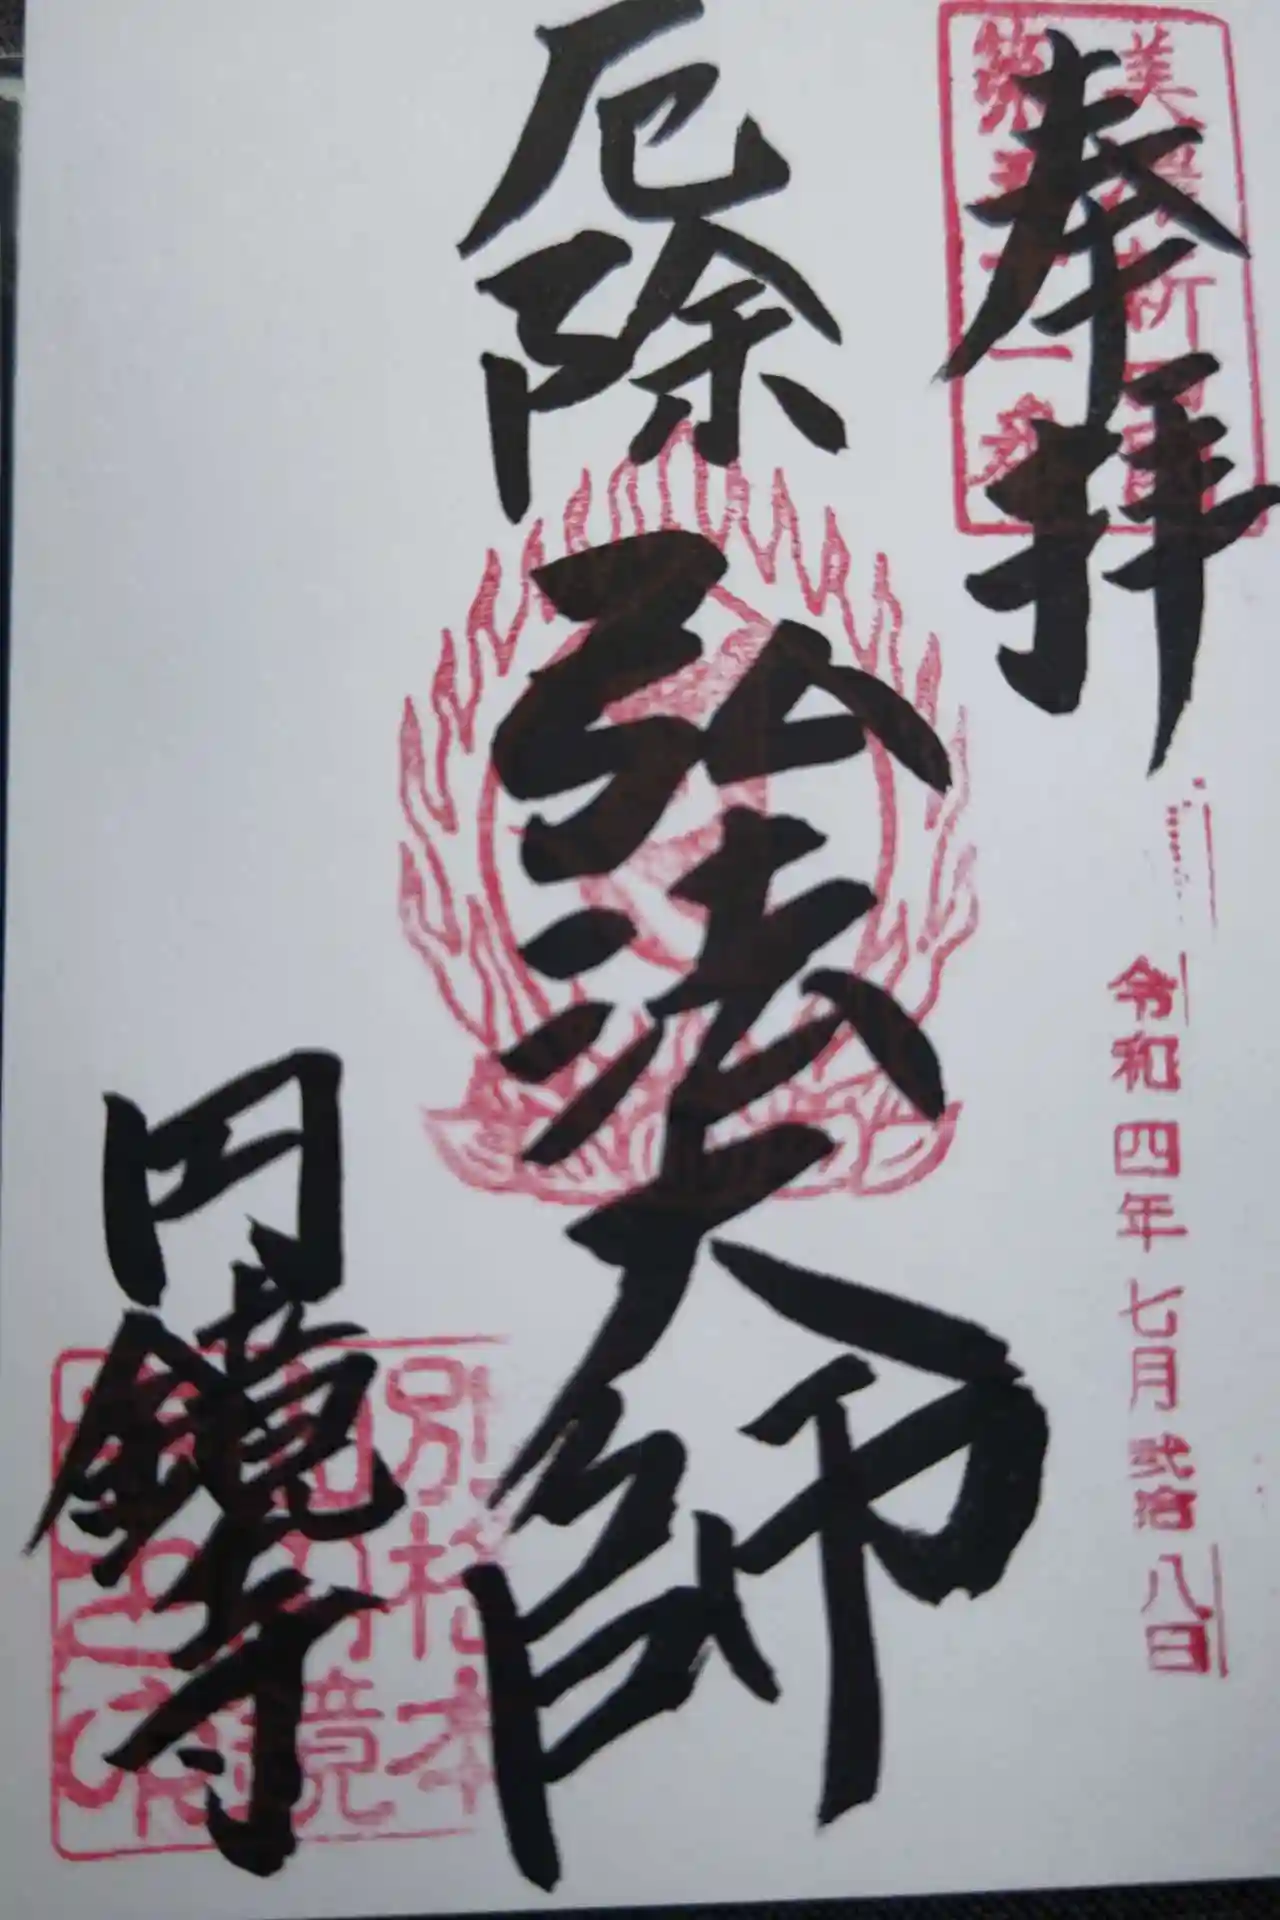 奉拝
美濃新四国
第三十一番
令和四年七月弐拾八日
厄除
弘法大師
円鏡寺
別格本